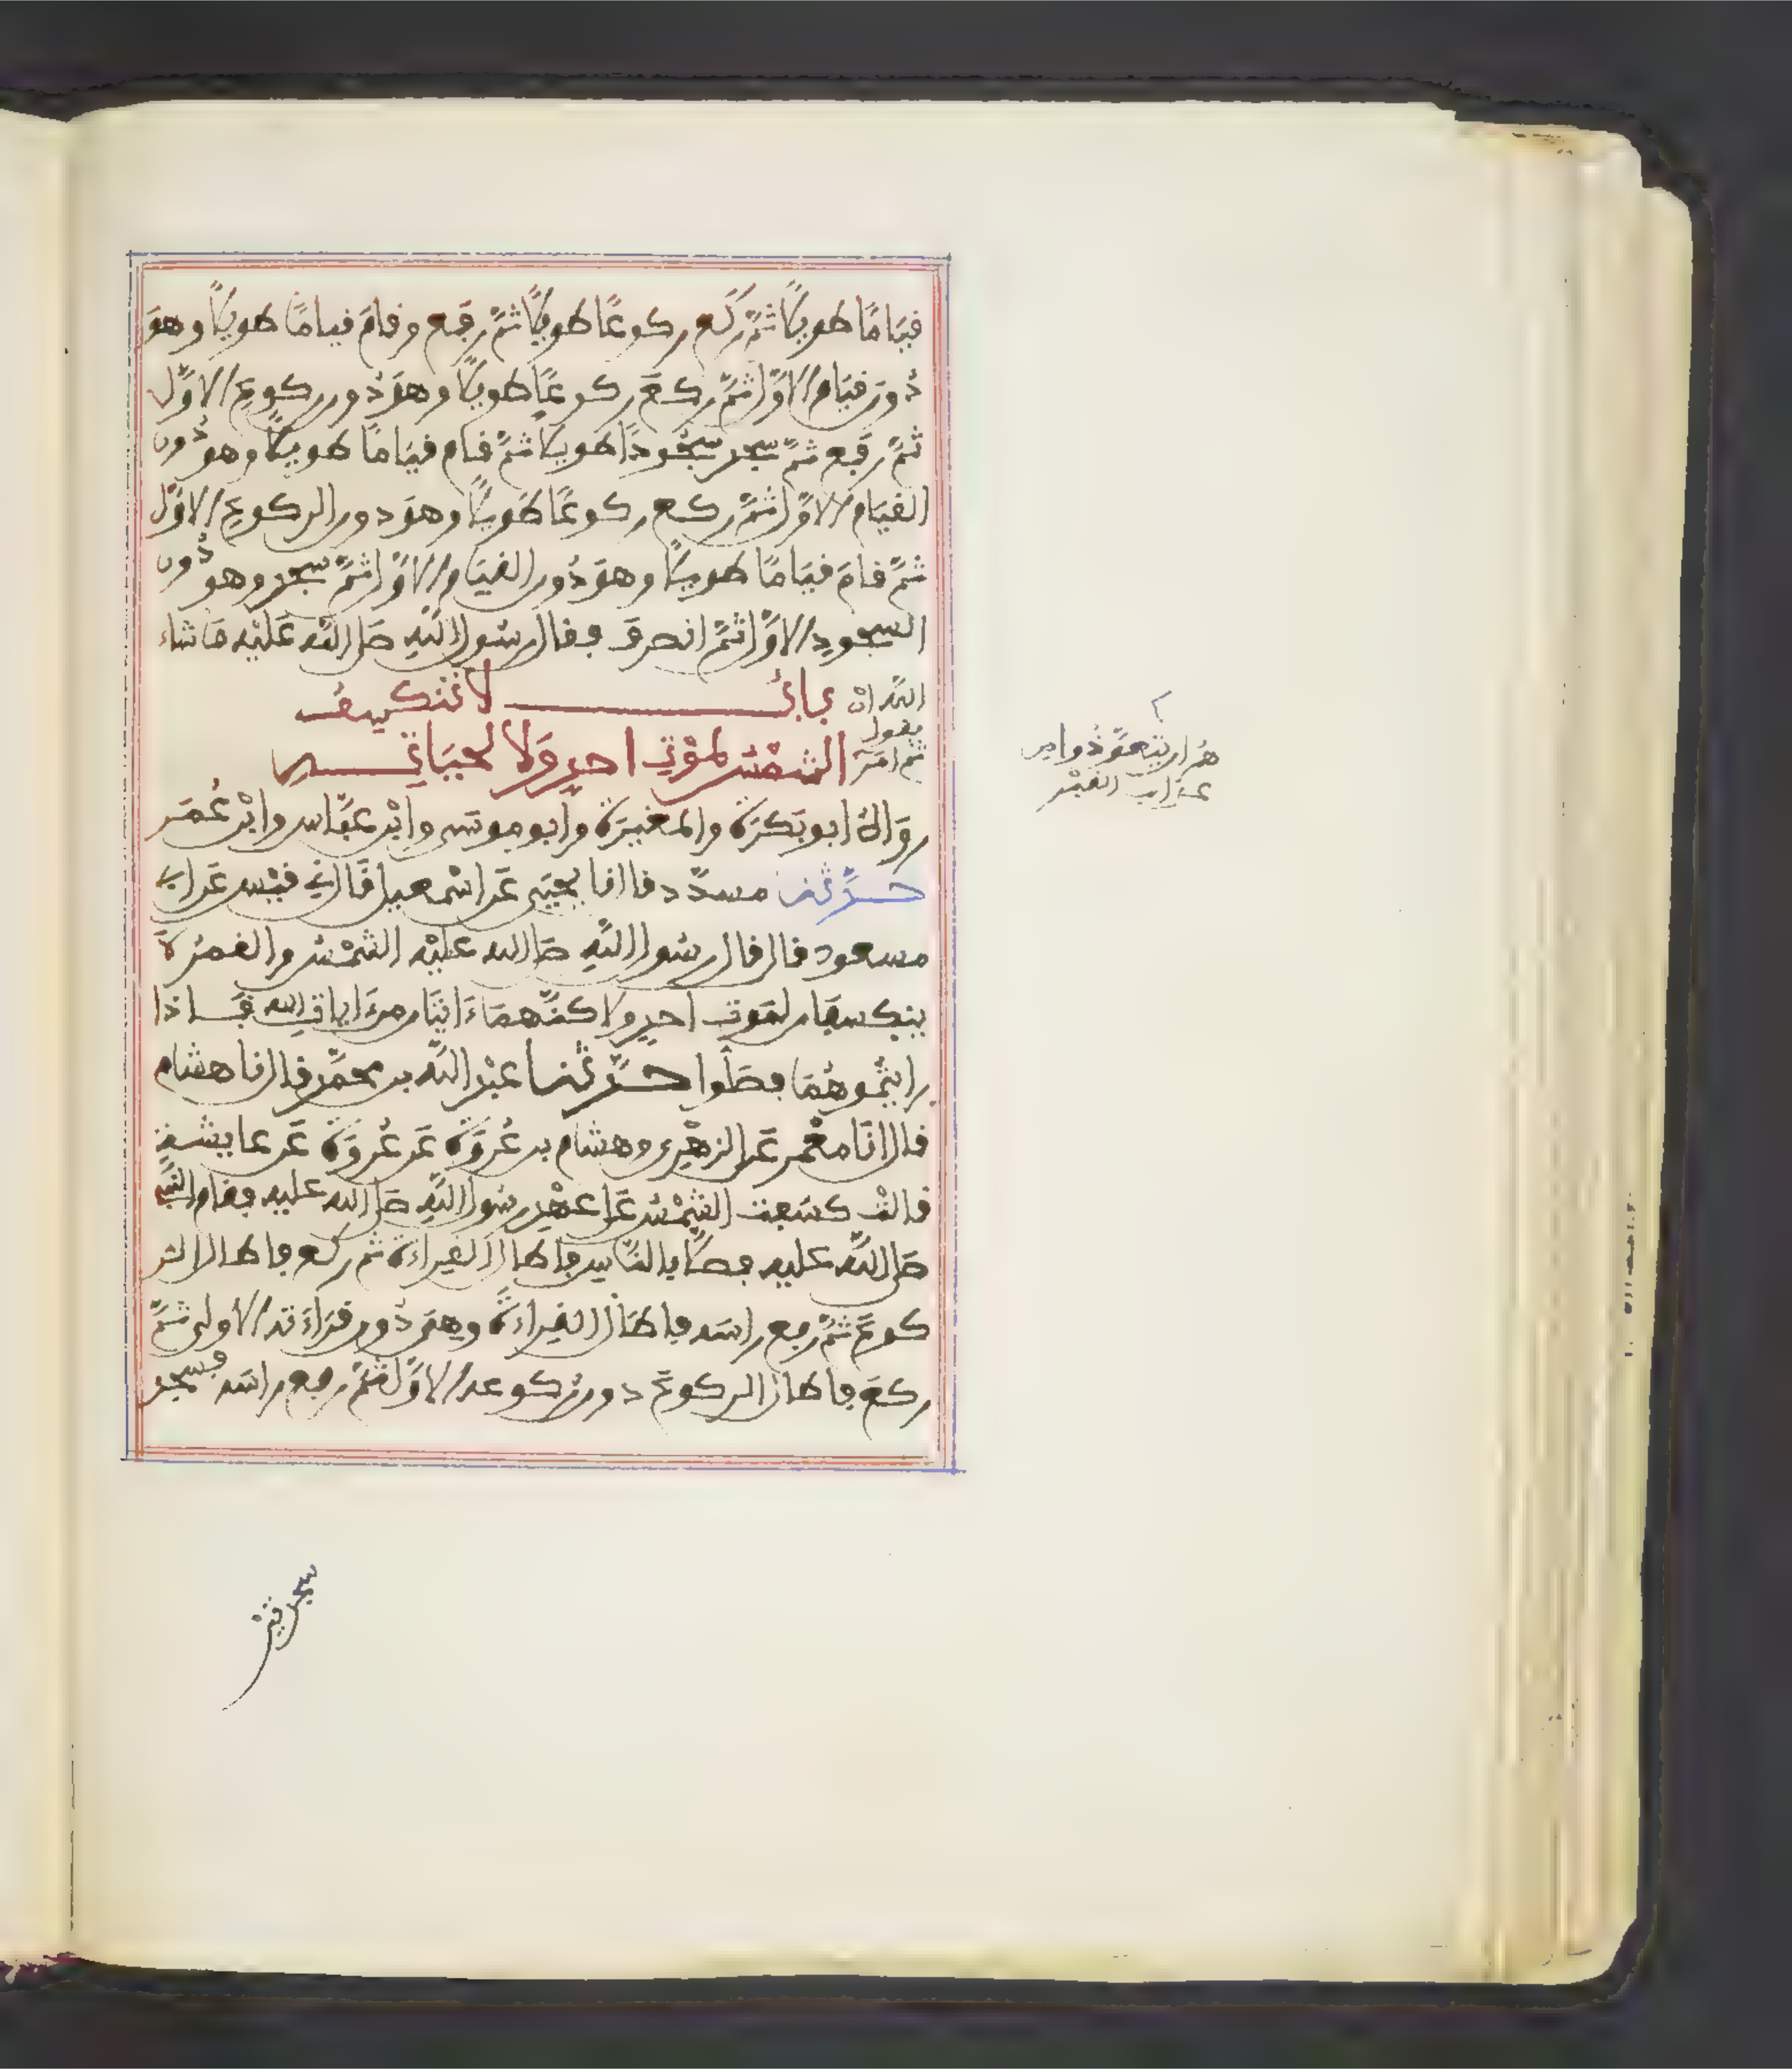 قيامًا طويلًا ثمّ ركع ركوعًا طويلًا ثمّ رفع وقام قيامًا طويلًا وهو
دون قيام الاوّل ثمّ ركع ركوعًا طويلًا وهو دون ركوع الاوّل
ثمّ رفع ثمّ سجد سجودًا طويلًا ثمّ قام قيامًا طويلًا وهو دون
القيام الاوّل ثمّ ركع ركوعًا طويلًا وهو دون الركوع الاوّل
ثمّ قام قيامًا طويلًا وهو دون القيام الاوّل ثمّ سجد وهو دون
السجود الاوّل ثمّ انصرف فقال رسول الله صلى الله عليه ما شاء
الله ان يقول ثم امر
هم ان يتعوّذوا من
عذاب القبر
باب لا تنكسف
الشمس لموت احد ولا لحياته
رواه ابو بكرة والمغيرة وابو موسى وابن عبّاس وابن عمر
حدّثنا مسدّد قال نا يحيى عن اسمعيل قال ني قيس عن ابي
مسعود قال قال رسول الله صلى الله عليه الشمس والقمر لا
ينكسفان لموت احد ولاكنّهما ءايتان من ءايات الله فاذا
رايتموهما فصلّوا حدّثنا عبد الله بن محمّد قال نا هشام
قال انا معمر عن الزهري وهشام بن عروة عن عروة عن عايشة
قالت كسفت الشمس على عهد رسول الله صلى الله عليه فقام النبي
صلى الله عليه فصلّى بالنّاس فاطال القراءة ثم ركع فاطال الر
كوع ثمّ رفع راسه فاطال القراءة وهي دون قراءته الاولى ثمّ
ركع فاطال الركوع دون ركوعه الاوّل ثمّ رفع راسه فسجد
سجدتين